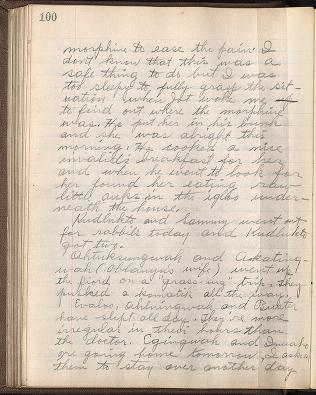 100
morphine to ease the pain I
don't know that this was a
safe thing to do but I was
too sleepy to fully grasp the sit-
uation when Jot woke me
to find out where the morphine
was. He put her in his bunk
and she was alright this
morning. He cooked a nice
invalid's breakfast for her
and when he went to look for
her found her eating raw
little auks in the igloo under-
neath the house.
Kudlukto and Sammy went out
for rabbits today and Kudlukto
got two.
Ahtuksungwah and
wah (Oblanguis wife) went up
the fiord on a "grass-ing" trip. They
pushed a komatik all the way.
Evaloo, and Buster
have slept all day. They're more
irregular in their hours than
the doctor. Egingwah and
are going home tomorrow. I asked
them to stay over another day